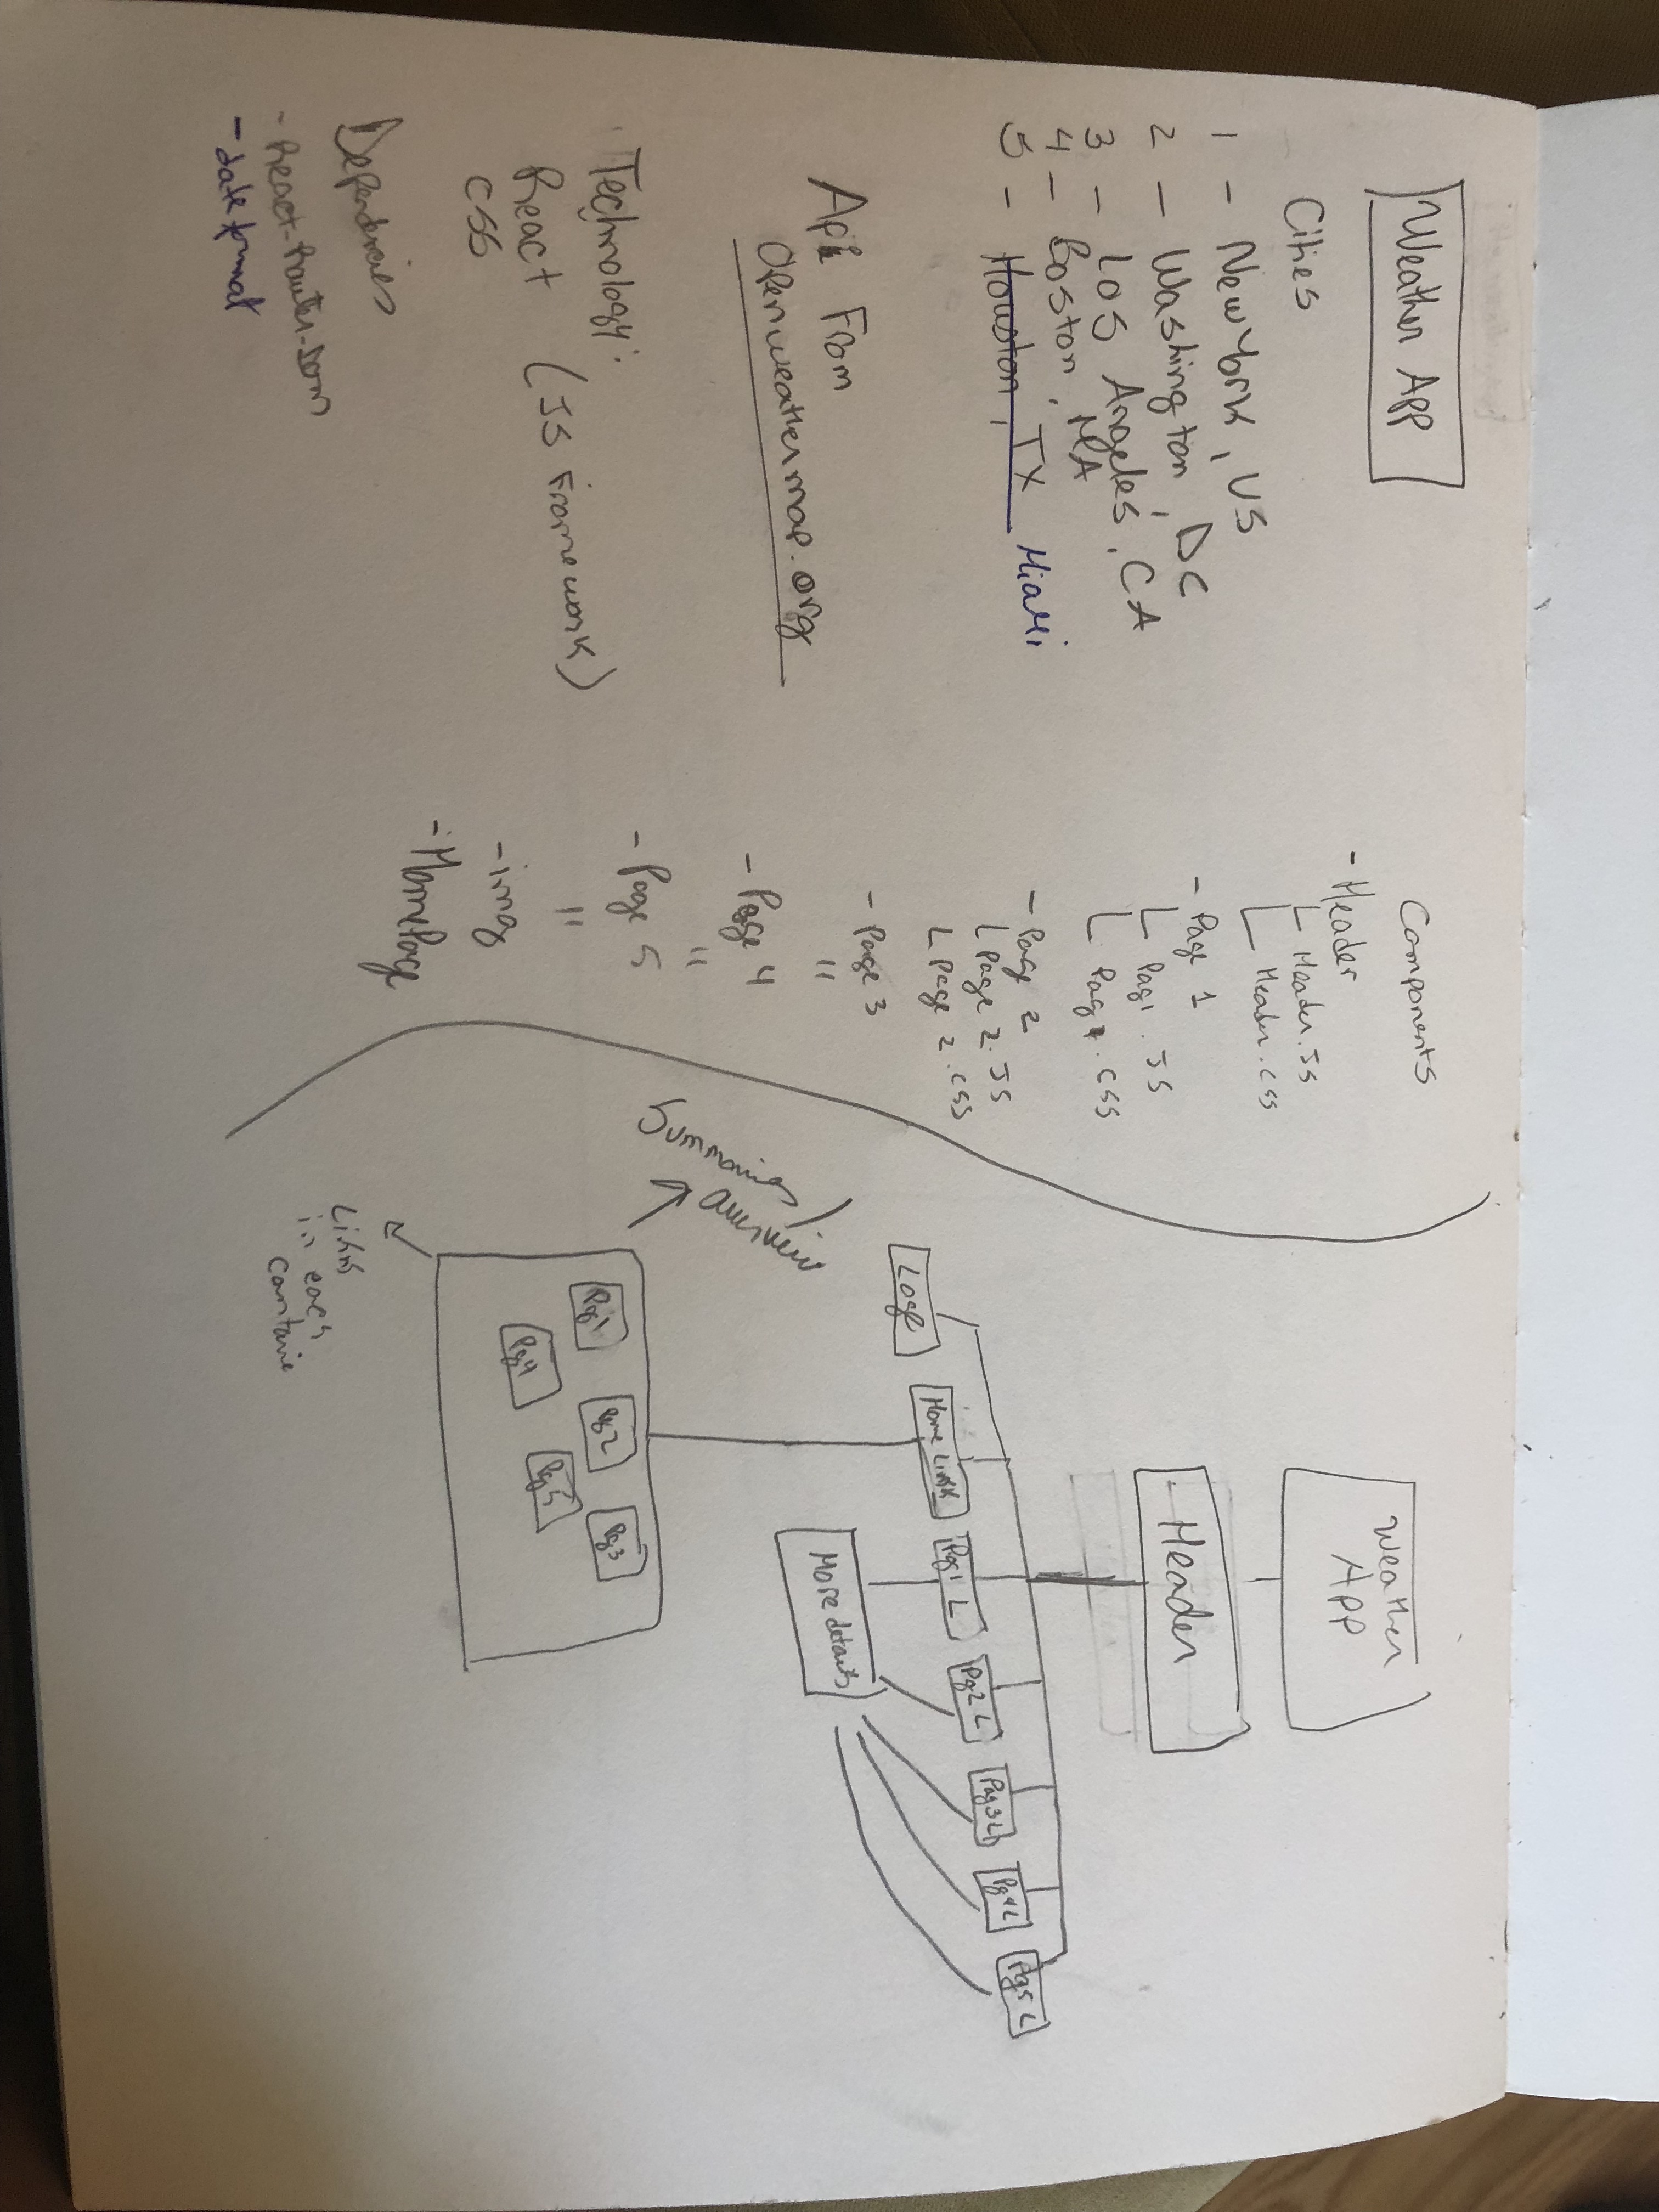 Weather App
Cities
1 - New York, US
2 - Washington, DC
3 - Los Angeles, CA
4 - Boston, MA
5 - Houston, TX Miami
Api From
Openweathermap.org
Technology:
React (JS Framework)
CSS
Dependencies
- React-Router-Dom
- date format
Components
- Header
Header.JS
Header.css
- Page 1
Pag1.JS
Pag1.CSS
- Page 2
Page 2.JS
Page 2.css
- Page 3
"
- Page 4
"
- Page 5
"
- img
- HomePage
Weather
App
Header
Logo
Home Link
Pag1 L
Pg2 L
Pag3 L
Pg4 L
Pg5 L
More details
Summaries/
overview
Pag1
Pg2
Pag3
Pg4
Pg5
Links
in each